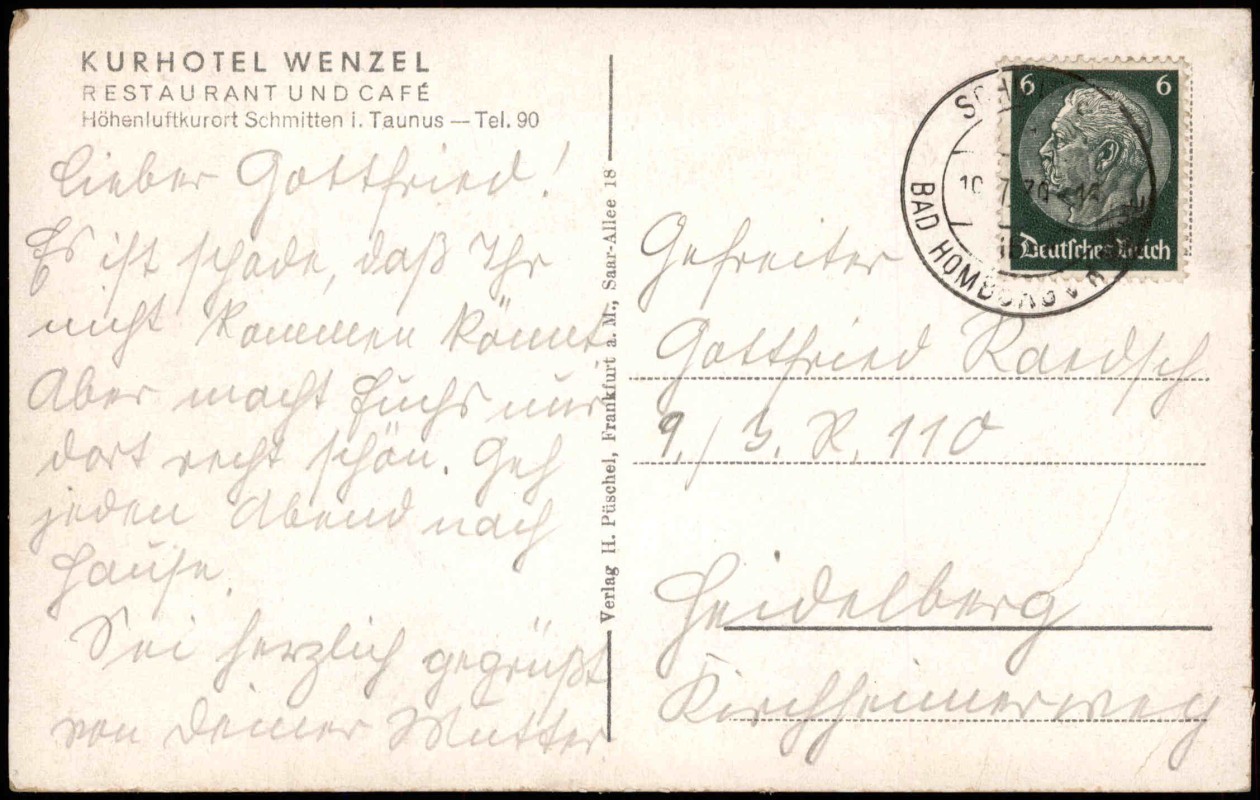 KURHOTEL WENZEL
RESTAURANT UND CAFÉ
Höhenluftkurort Schmitten i. Taunus — Tel. 90
Lieber Gottfried!
Es ist schade, daß Ihr
nicht kommen könnt
Aber macht Euchs nur
dort recht schön. Geh
jeden Abend nach
Hause.
Sei herzlich gegrüßt
von Deiner Mutter
Verlag H. Püschel, Frankfurt a. M., Saar-Allee 18
6 6
Deutsches Reich
BAD HOMBURG
Gefreiter
Gottfried Raedsch
9./3. R. 110
Heidelberg
Kirchheimerweg